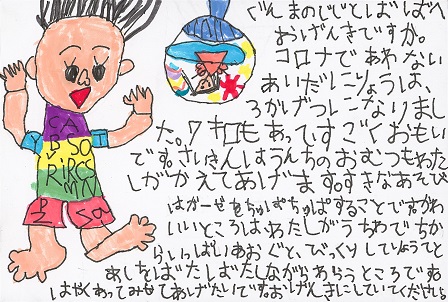 ぐんまのじじとばばへ
おげんきですか。
コロナであわない
あいだにりょうは、
ろかげつになりまし
た。7キロもあってすごくおもい
です。さいきんはうんちのおむつもわた
しがかえてあげます。すきなあそび
はガーゼをちゅぱちゅぱすることです。かわ
いいところはわたしがうちわでちか
らいっぱいあおぐと、びっくりしてりょうてと
あしをばたばたしながらわらうところです。
はやくあってみせてあげたいです。おげんきにしていてください。